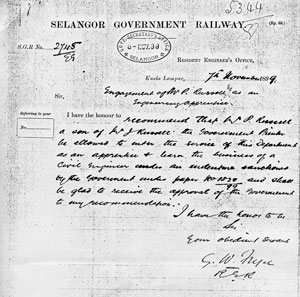 SELANGOR GOVERNMENT RAILWAY.
S.G.R No. 2745/99
SELANGOR
RESIDENT ENGINEER'S OFFICE,
Kuala Lumpor, 7th November 1899.
Sir,
Engagement of Mr P. Russell as an
Engineering Apprentice.
Referring to your
I have the honour to recommend that Mr P. Russell
a son of Mr J Russell the Government Printer
be allowed to enter the service of this Department
as an apprentice & learn the business of a
Civil Engineer under an indenture sanctioned
by the Government under paper No 1830/99 and shall
be glad to receive the approval of the Government
to my recommendation.
I have the honor to be
Sir
Your obedient Servant
G. W. Fryer
R.E.R